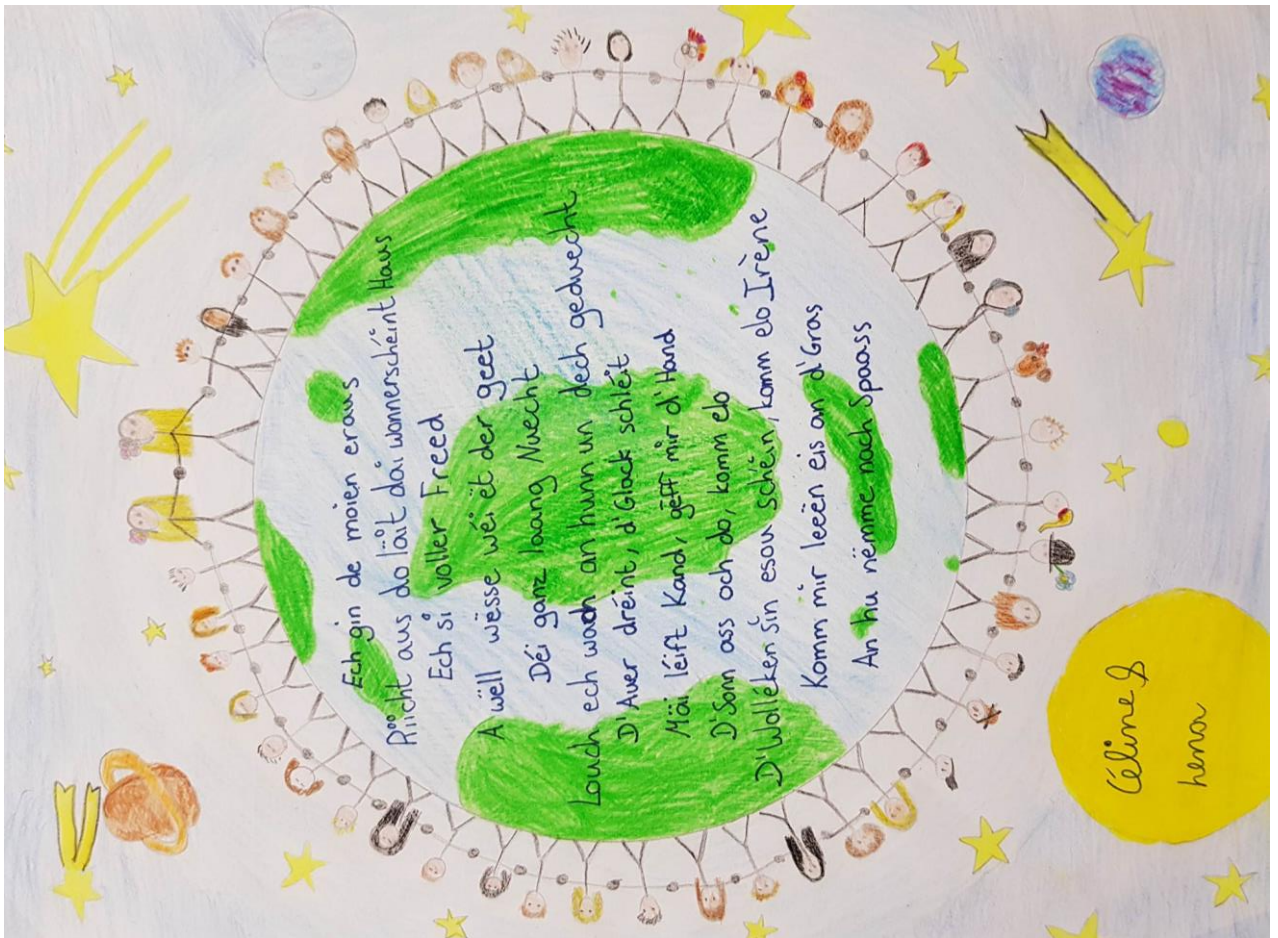 Ech gin de moien eraus
Riicht aus do läit däi wonnerschéint Haus
Ech si voller Freed
A wëll wësse wéi et der geet
Déi ganz laang Nuecht
Louch ech wach an hunn un dech geduecht
D'Auer dréint, d'Glock schléit
Mäi léift Kand, gëff mir d'Hand
D'Sonn ass och do, komm elo
D'Wolleken sin esou schéin, komm elo Irène
Komm mir leeën eis an d'Gras
An hu nëmme nach Spaass
Céline &